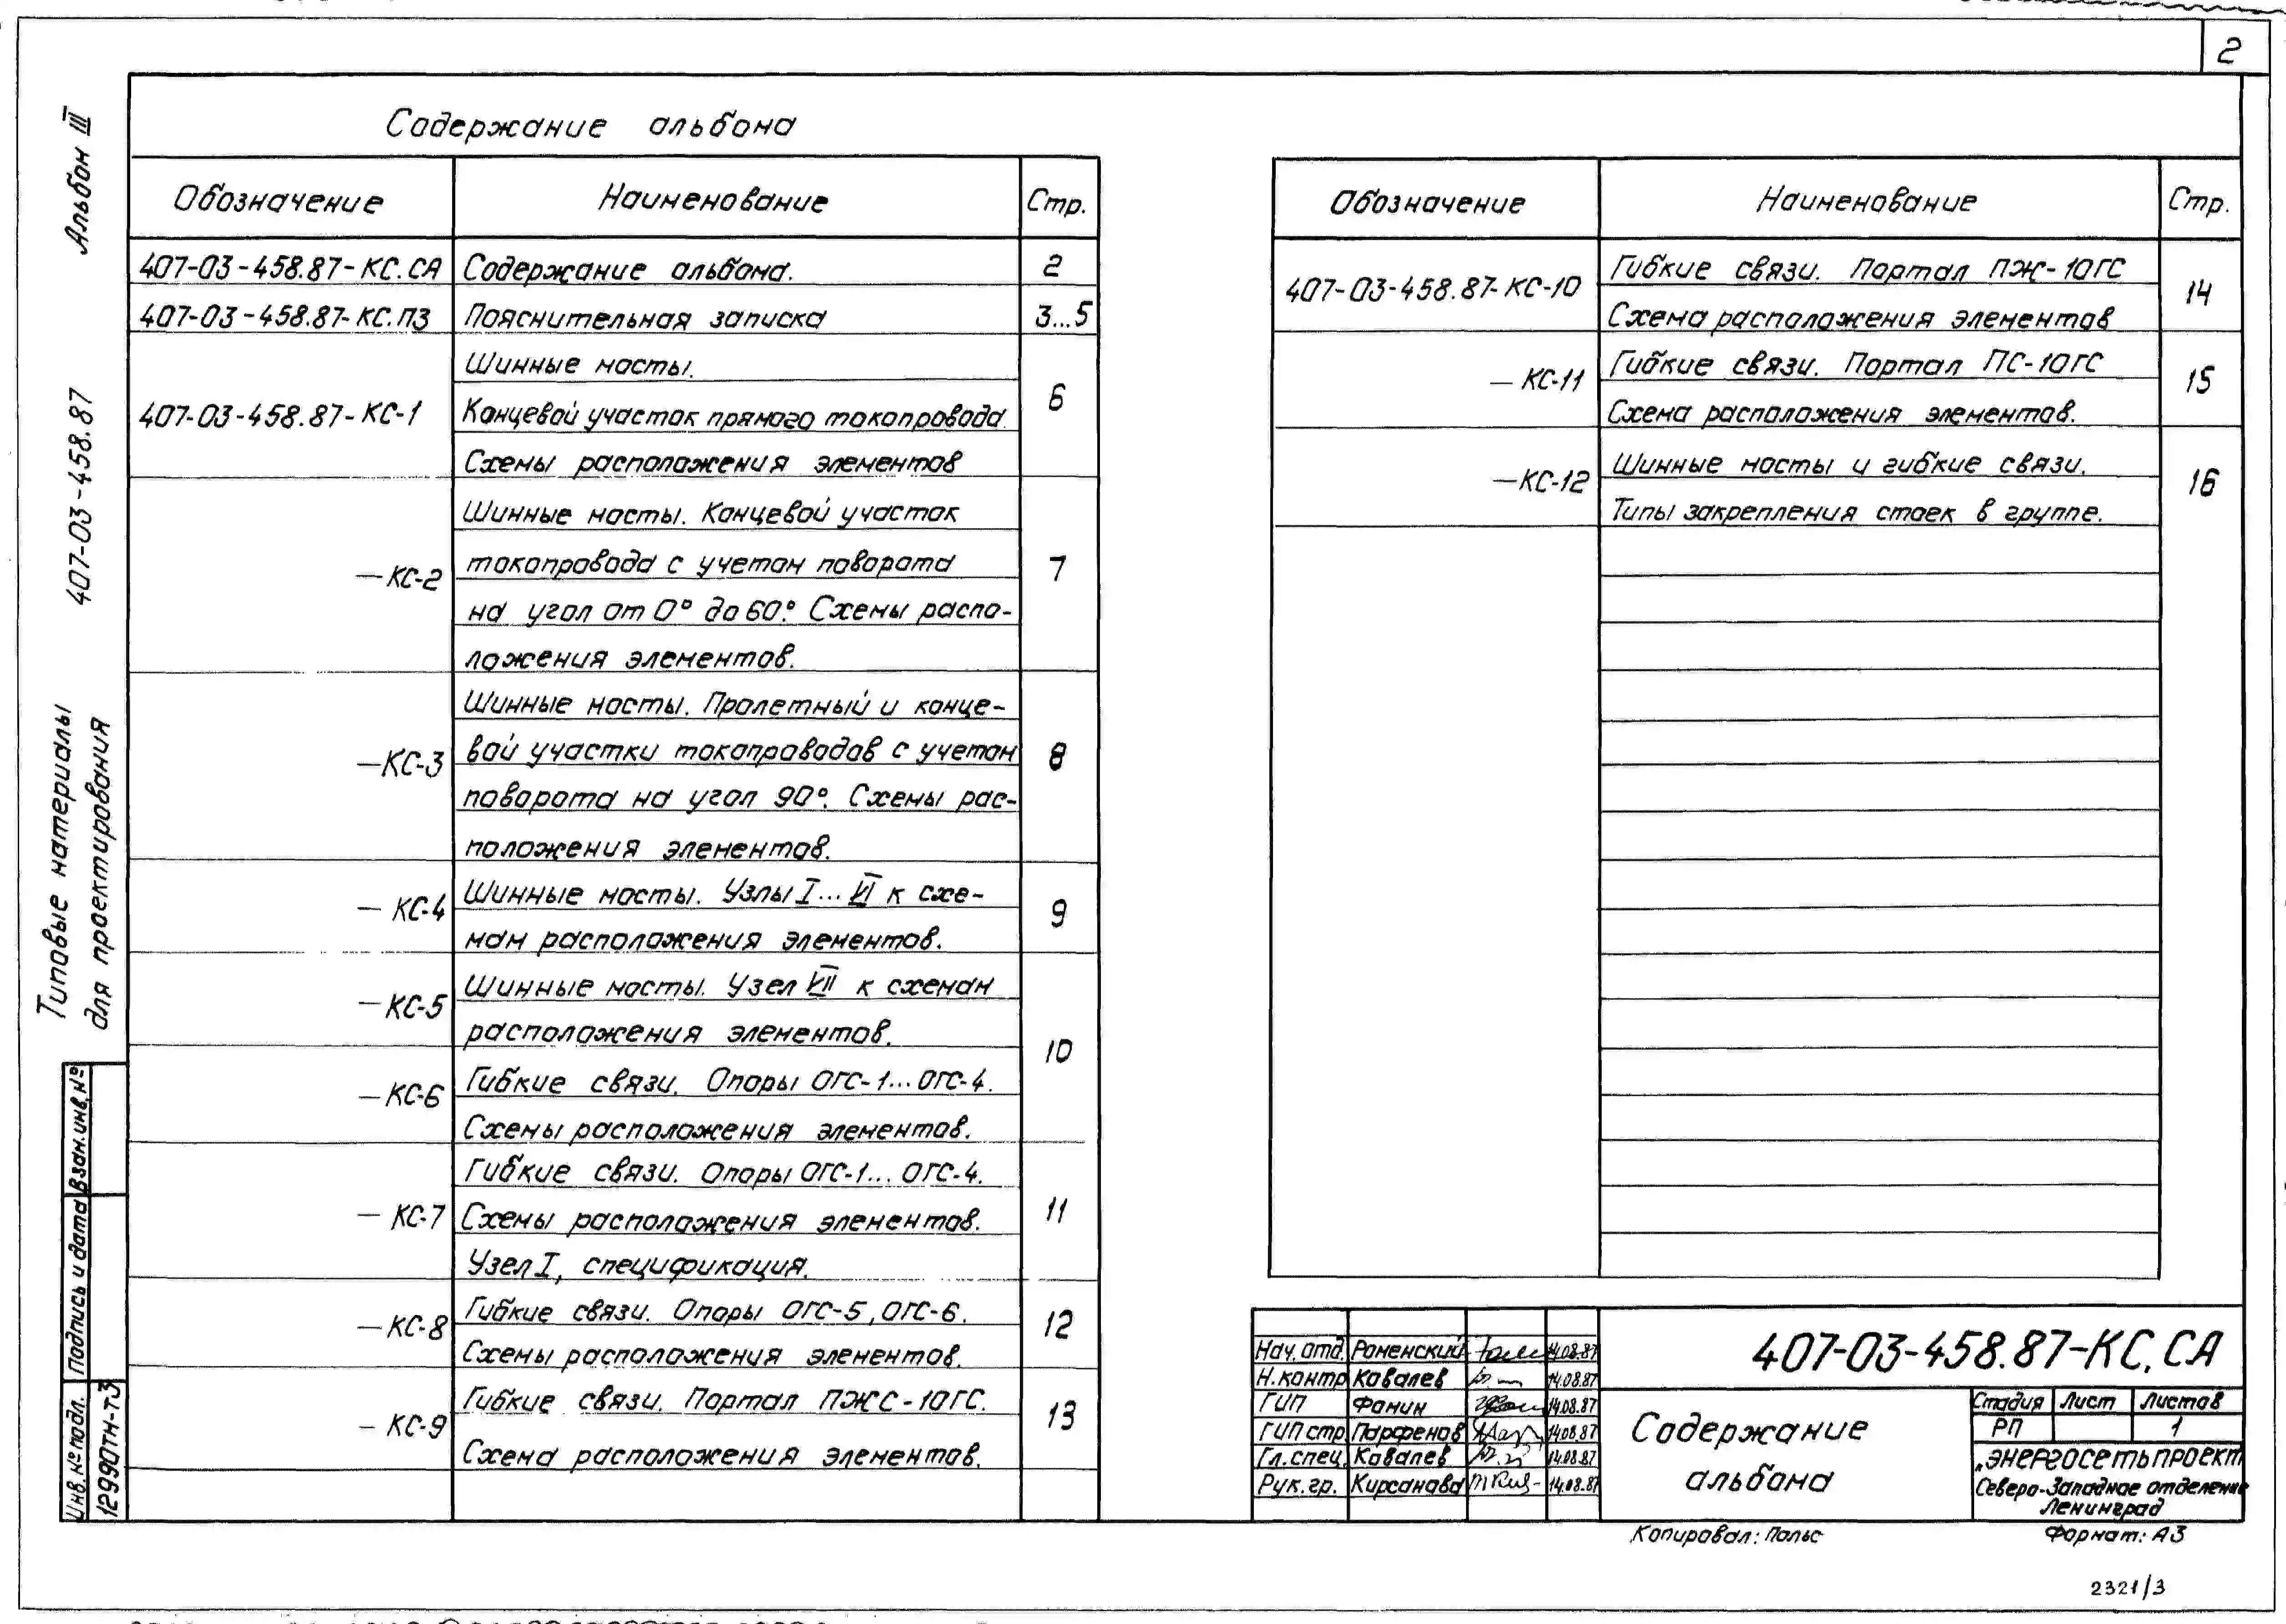 2
Альбом III
407-03-458.87
Типовые материалы
для проектирования
Содержание альбома
Обозначение Наименование Стр.
407-03-458.87-КС.СА Содержание альбома. 2
407-03-458.87-КС.ПЗ Пояснительная записка 3...5
Шинные мосты.
407-03-458.87-КС-1 Концевой участок прямого токопровода. 6
Схемы расположения элементов
Шинные мосты. Концевой участок
—КС-2 токопровода с учетом поворота 7
на угол от 0° до 60°. Схемы распо-
ложения элементов.
Шинные мосты. Пролетный и конце-
—КС-3 вой участки токопроводов с учетом 8
поворота на угол 90°. Схемы рас-
положения элементов.
— КС-4 Шинные мосты. Узлы I...VI к схе- 9
мам расположения элементов.
—КС-5 Шинные мосты. Узел VII к схемам
расположения элементов.
10
—КС-6 Гибкие связи. Опоры ОГС-1...ОГС-4.
Схемы расположения элементов.
Гибкие связи. Опоры ОГС-1... ОГС-4.
— КС-7 Схемы расположения элементов. 11
Узел I, спецификация.
—КС-8 Гибкие связи. Опоры ОГС-5, ОГС-6. 12
Схемы расположения элементов.
— КС-9 Гибкие связи. Портал ПЖС-10ГС. 13
Схема расположения элементов.
Обозначение Наименование Стр.
407-03-458.87-КС-10 Гибкие связи. Портал ПЖ-10ГС 14
Схема расположения элементов
— КС-11 Гибкие связи. Портал ПС-10ГС 15
Схема расположения элементов.
—КС-12 Шинные мосты и гибкие связи. 16
Типы закрепления стоек в группе.
Взам.инв.№
Подпись и дата
Инв.№ подл.
12990тм-т3
Нач.отд. Роменский 14.08.87
Н.контр Ковалев 14.08.87
ГИП Фомин 14.08.87
ГИП стр. Парфенов 14.08.87
Гл.спец. Ковалев 14.08.87
Рук.гр. Кирсанова 14.08.87
407-03-458.87-КС.СА
Содержание
альбома
Стадия Лист Листов
РП 1
„Энергосетьпроект
Северо-Западное отделение
Ленинград
Копировал: Польс Формат: А3
2321/3